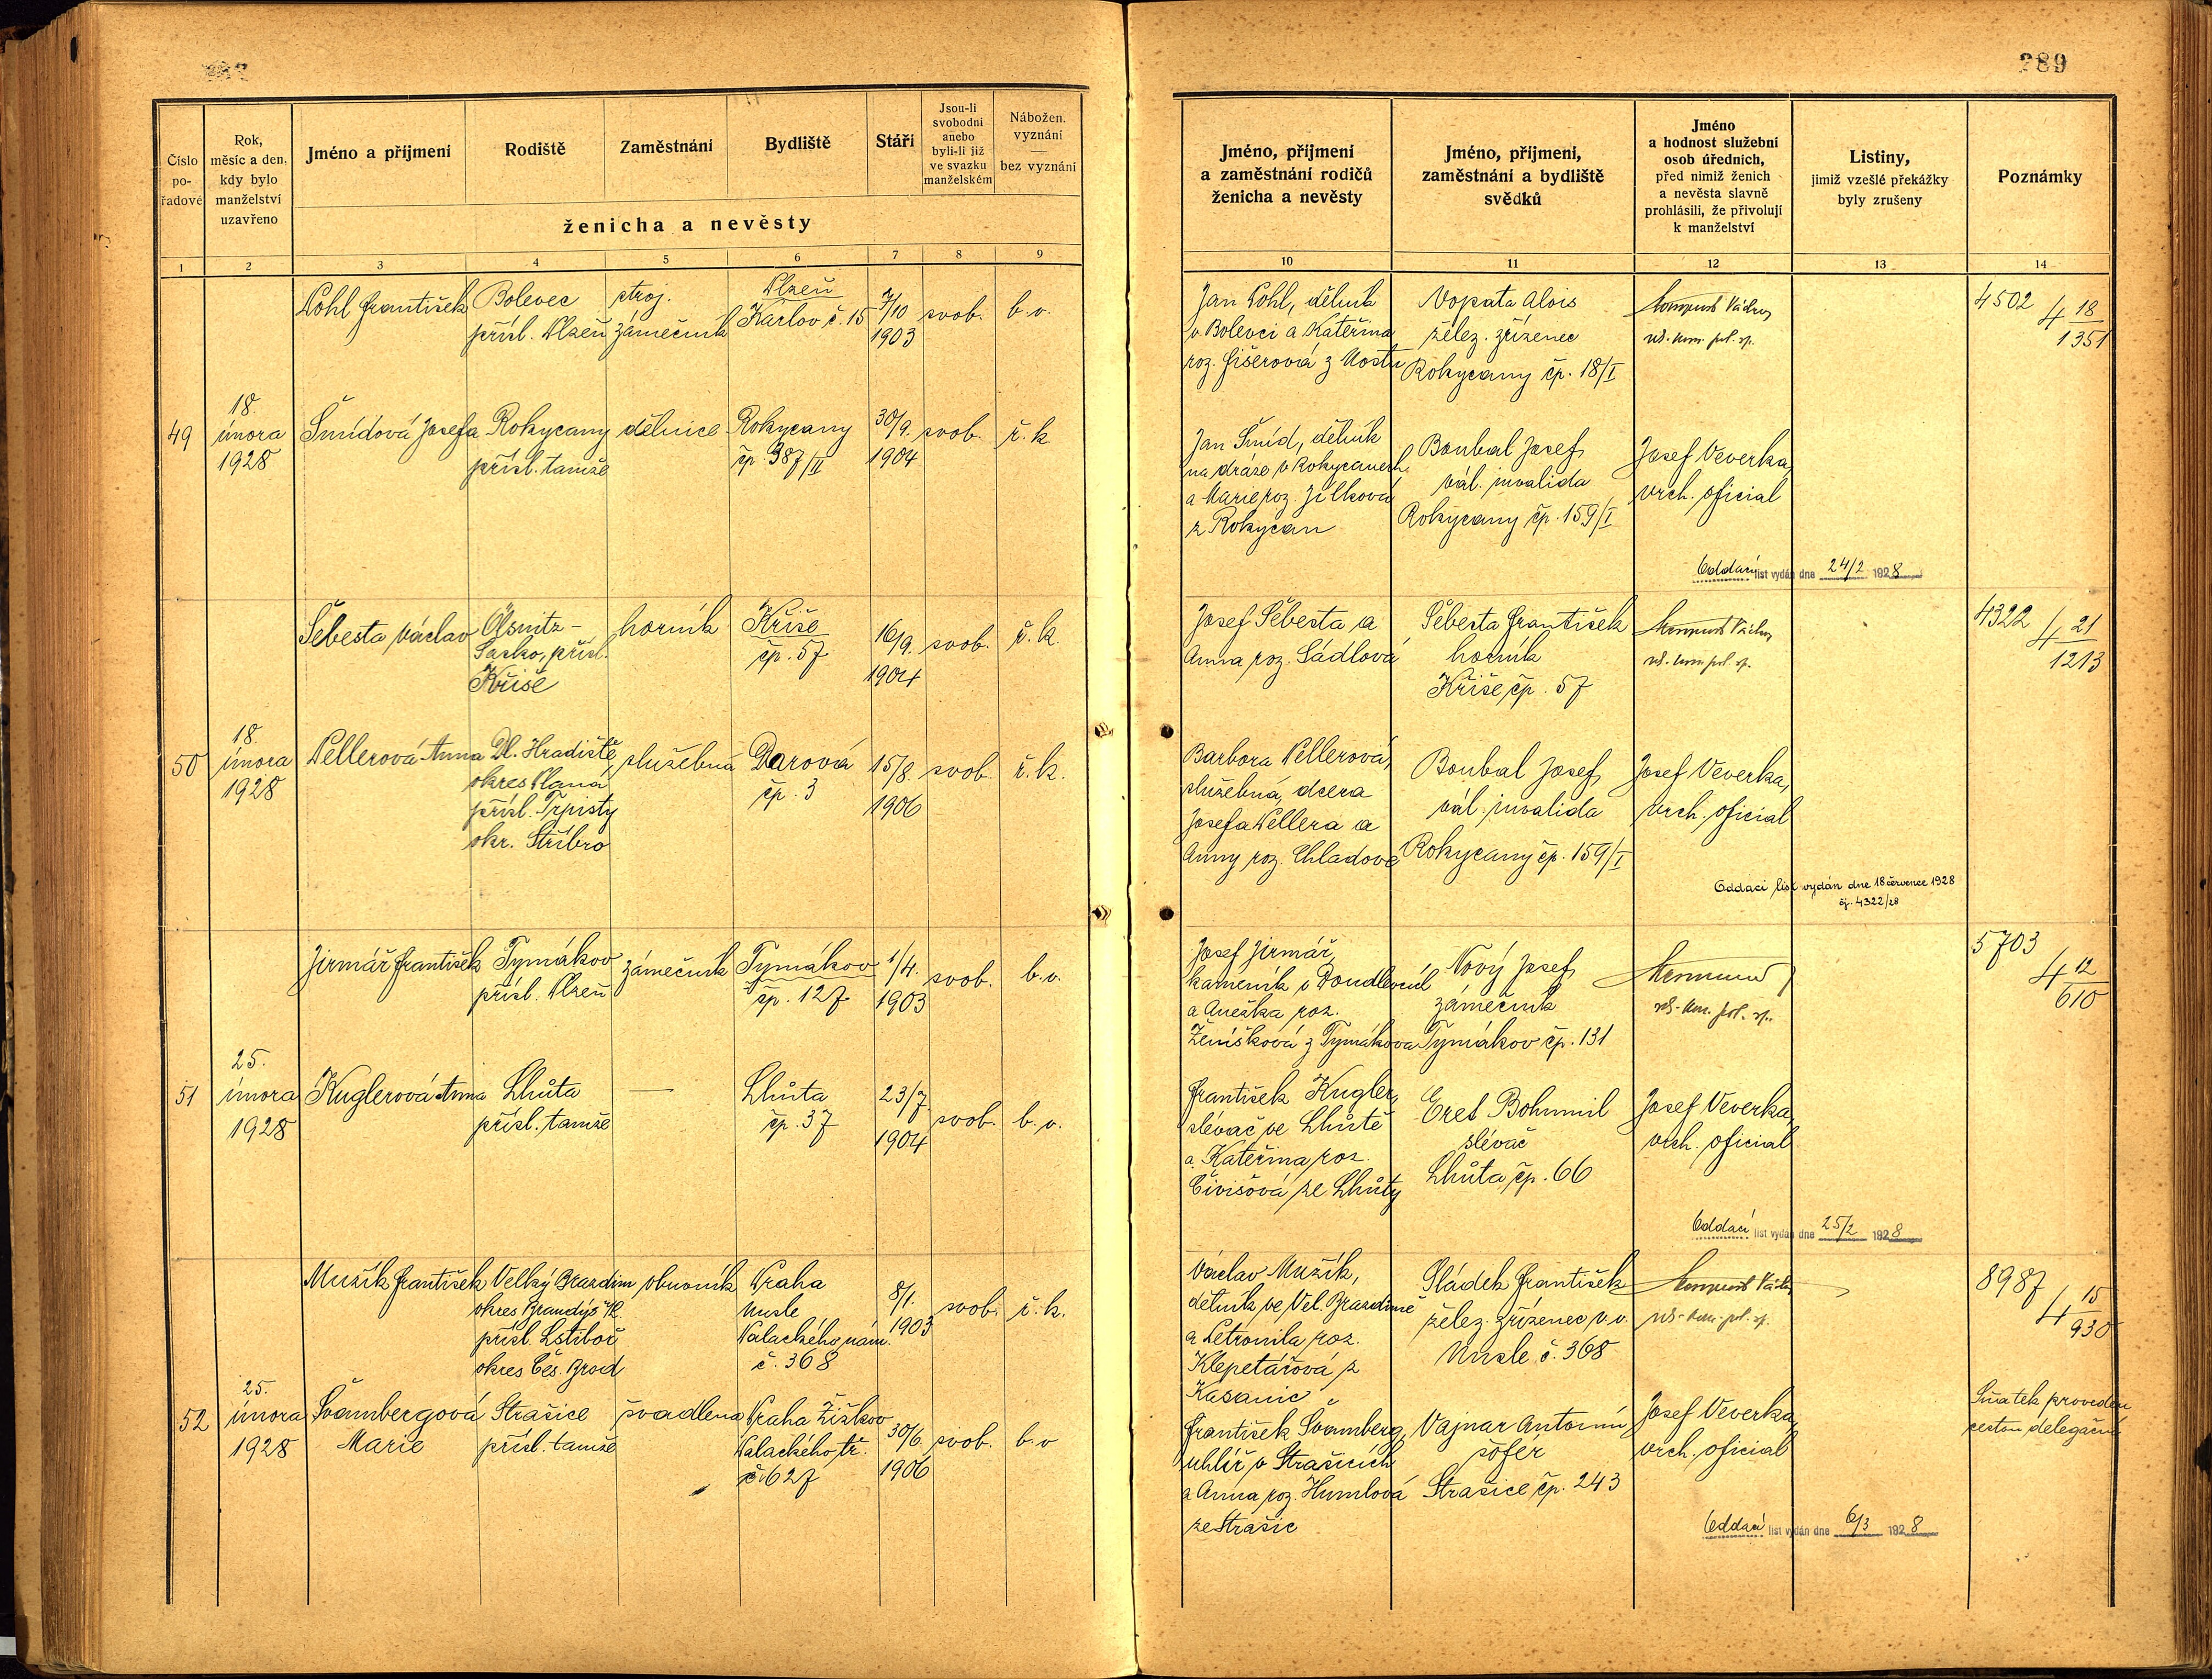 289
Číslo pořadové
Rok, měsíc a den, kdy bylo manželství uzavřeno
Jméno a příjmení
Rodiště
Zaměstnání
Bydliště
Stáří
Jsou-li svobodni anebo byli-li již ve svazku manželském
Nábožen. vyznání — bez vyznání
ženicha a nevěsty
Jméno, příjmení a zaměstnání rodičů ženicha a nevěsty
Jméno, příjmení, zaměstnání a bydliště svědků
Jméno a hodnost služební osob úředních, před nimiž ženich a nevěsta slavně prohlásili, že přivolují k manželství
Listiny, jimiž vzešlé překážky byly zrušeny
Poznámky
1 2 3 4 5 6 7 8 9 10 11 12 13 14
Pohl František
Bolevec
přísl. Plzeň
stroj.
zámečník
Plzeň
Karlov č. 15
7/10
1903
svob.
b.v.
Jan Pohl, dělník
v Bolevci a Kateřina
roz. Fišerová z Mostu
Vopata Alois
želez. zřízenec
Rokycany čp. 18/I
4502
4 18
1351
49
18.
února
1928
Šmídová Josefa
Rokycany
přísl. tamže
dělnice
Rokycany
čp. 387/II
30/9.
1904
svob.
ř.k
Jan Šmíd, dělník
na dráze v Rokycanech
a Marie roz. Jílková
z Rokycan
Boubal Josef
vál. invalida
Rokycany čp. 159/I
Josef Veverka,
vrch. oficial
Oddací list vydán dne 24/2 1928
Šebesta Václav
Ölsnitz -
Sasko, přísl.
Kříše
horník
Kříše
čp. 57
16/9.
1904
svob.
ř.k.
Josef Šebesta a
Anna roz. Sádlová
Šebesta František
horník
Kříše čp. 57
4322
4 21
1213
50
18.
února
1928
Pellerová Anna
Dl. Hradiště
okres Planá
přísl. Trpisty
okr. Stříbro
služebná
Darová
čp. 3
15/8.
1906
svob.
ř.k.
Barbora Pellerová,
služebná, dcera
Josefa Pellera a
Anny roz. Chladové
Boubal Josef
vál. invalida
Rokycany čp. 159/I
Josef Veverka,
vrch. oficial
Oddací list vydán dne 18 července 1928
čj. 4322/28
Jirmář František
Tymákov
přísl. Plzeň
zámečník
Tymákov
čp. 127
1/4.
1903
svob.
b.v.
Josef Jirmář,
kameník v
a Anežka roz.
Ženíšková z Tymákova
Nový Josef
zámečník
Tymákov čp. 131
5703
4 12
610
51
25.
února
1928
Kuglerová Anna
Lhůta
přísl. tamže
—
Lhůta
čp. 37
23/7.
1904
svob.
b.v.
František Kugler,
slévač ve Lhůtě
a Kateřina roz.
Čivišová ze Lhůty
Eret Bohumil
slévač
Lhůta čp. 66
Josef Veverka,
vrch. oficial
Oddací list vydán dne 25/2 1928
Mužík František
Velký Brazdim
okres Brandýs
přísl. Lstiboř
okres Čes. Brod
obuvník
Praha
Nusle
Palackého nám.
č. 368
8/1.
1903
svob.
ř.k.
Václav Mužík,
dělník ve Vel. Brazdimě
a Petronila roz.
Klepetářová z
Sládek František
želez. zřízenec v.v.
Nusle č. 368
8987
4 15
930
52
25.
února
1928
Švambergová
Marie
Strašice
přísl. tamže
švadlena
Praha Žižkov
Palackého tř.
č. 627
30/6.
1906
svob.
b.v
František Švamberg,
uhlíř v Strašicích
a Anna roz. Humlová
ze Strašic
Vajnar Antonín
šofér
Strašice čp. 243
Josef Veverka,
vrch. oficial
Sňatek proveden
cestou delegační
Oddací list vydán dne 6/3 1928